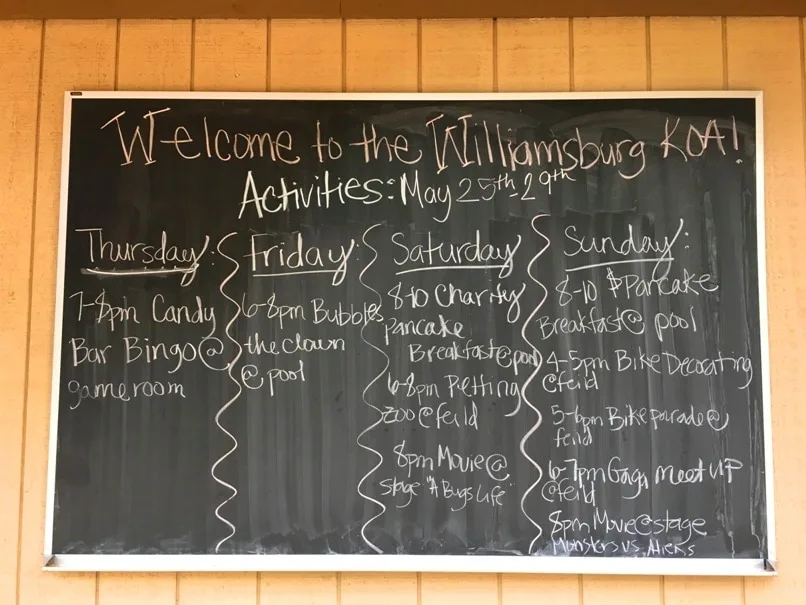 Welcome to the Williamsburg KOA!
Activities: May 25th-29th
Thursday:
7-8pm Candy
Bar Bingo@
gameroom
Friday:
6-8pm Bubbles
the clown
@pool
Saturday
8-10 Charity
pancake
Breakfast@pool
6-8pm Petting
zoo@feild
8pm Movie@
stage "A Bugs Life"
Sunday:
8-10 $Pancake
Breakfast@ pool
4-5pm Bike Decorating
@feild
5-6pm Bike parade@
feild
6-7pm Gaga meet UP
@feild
8pm Movie@stage
Monsters vs.